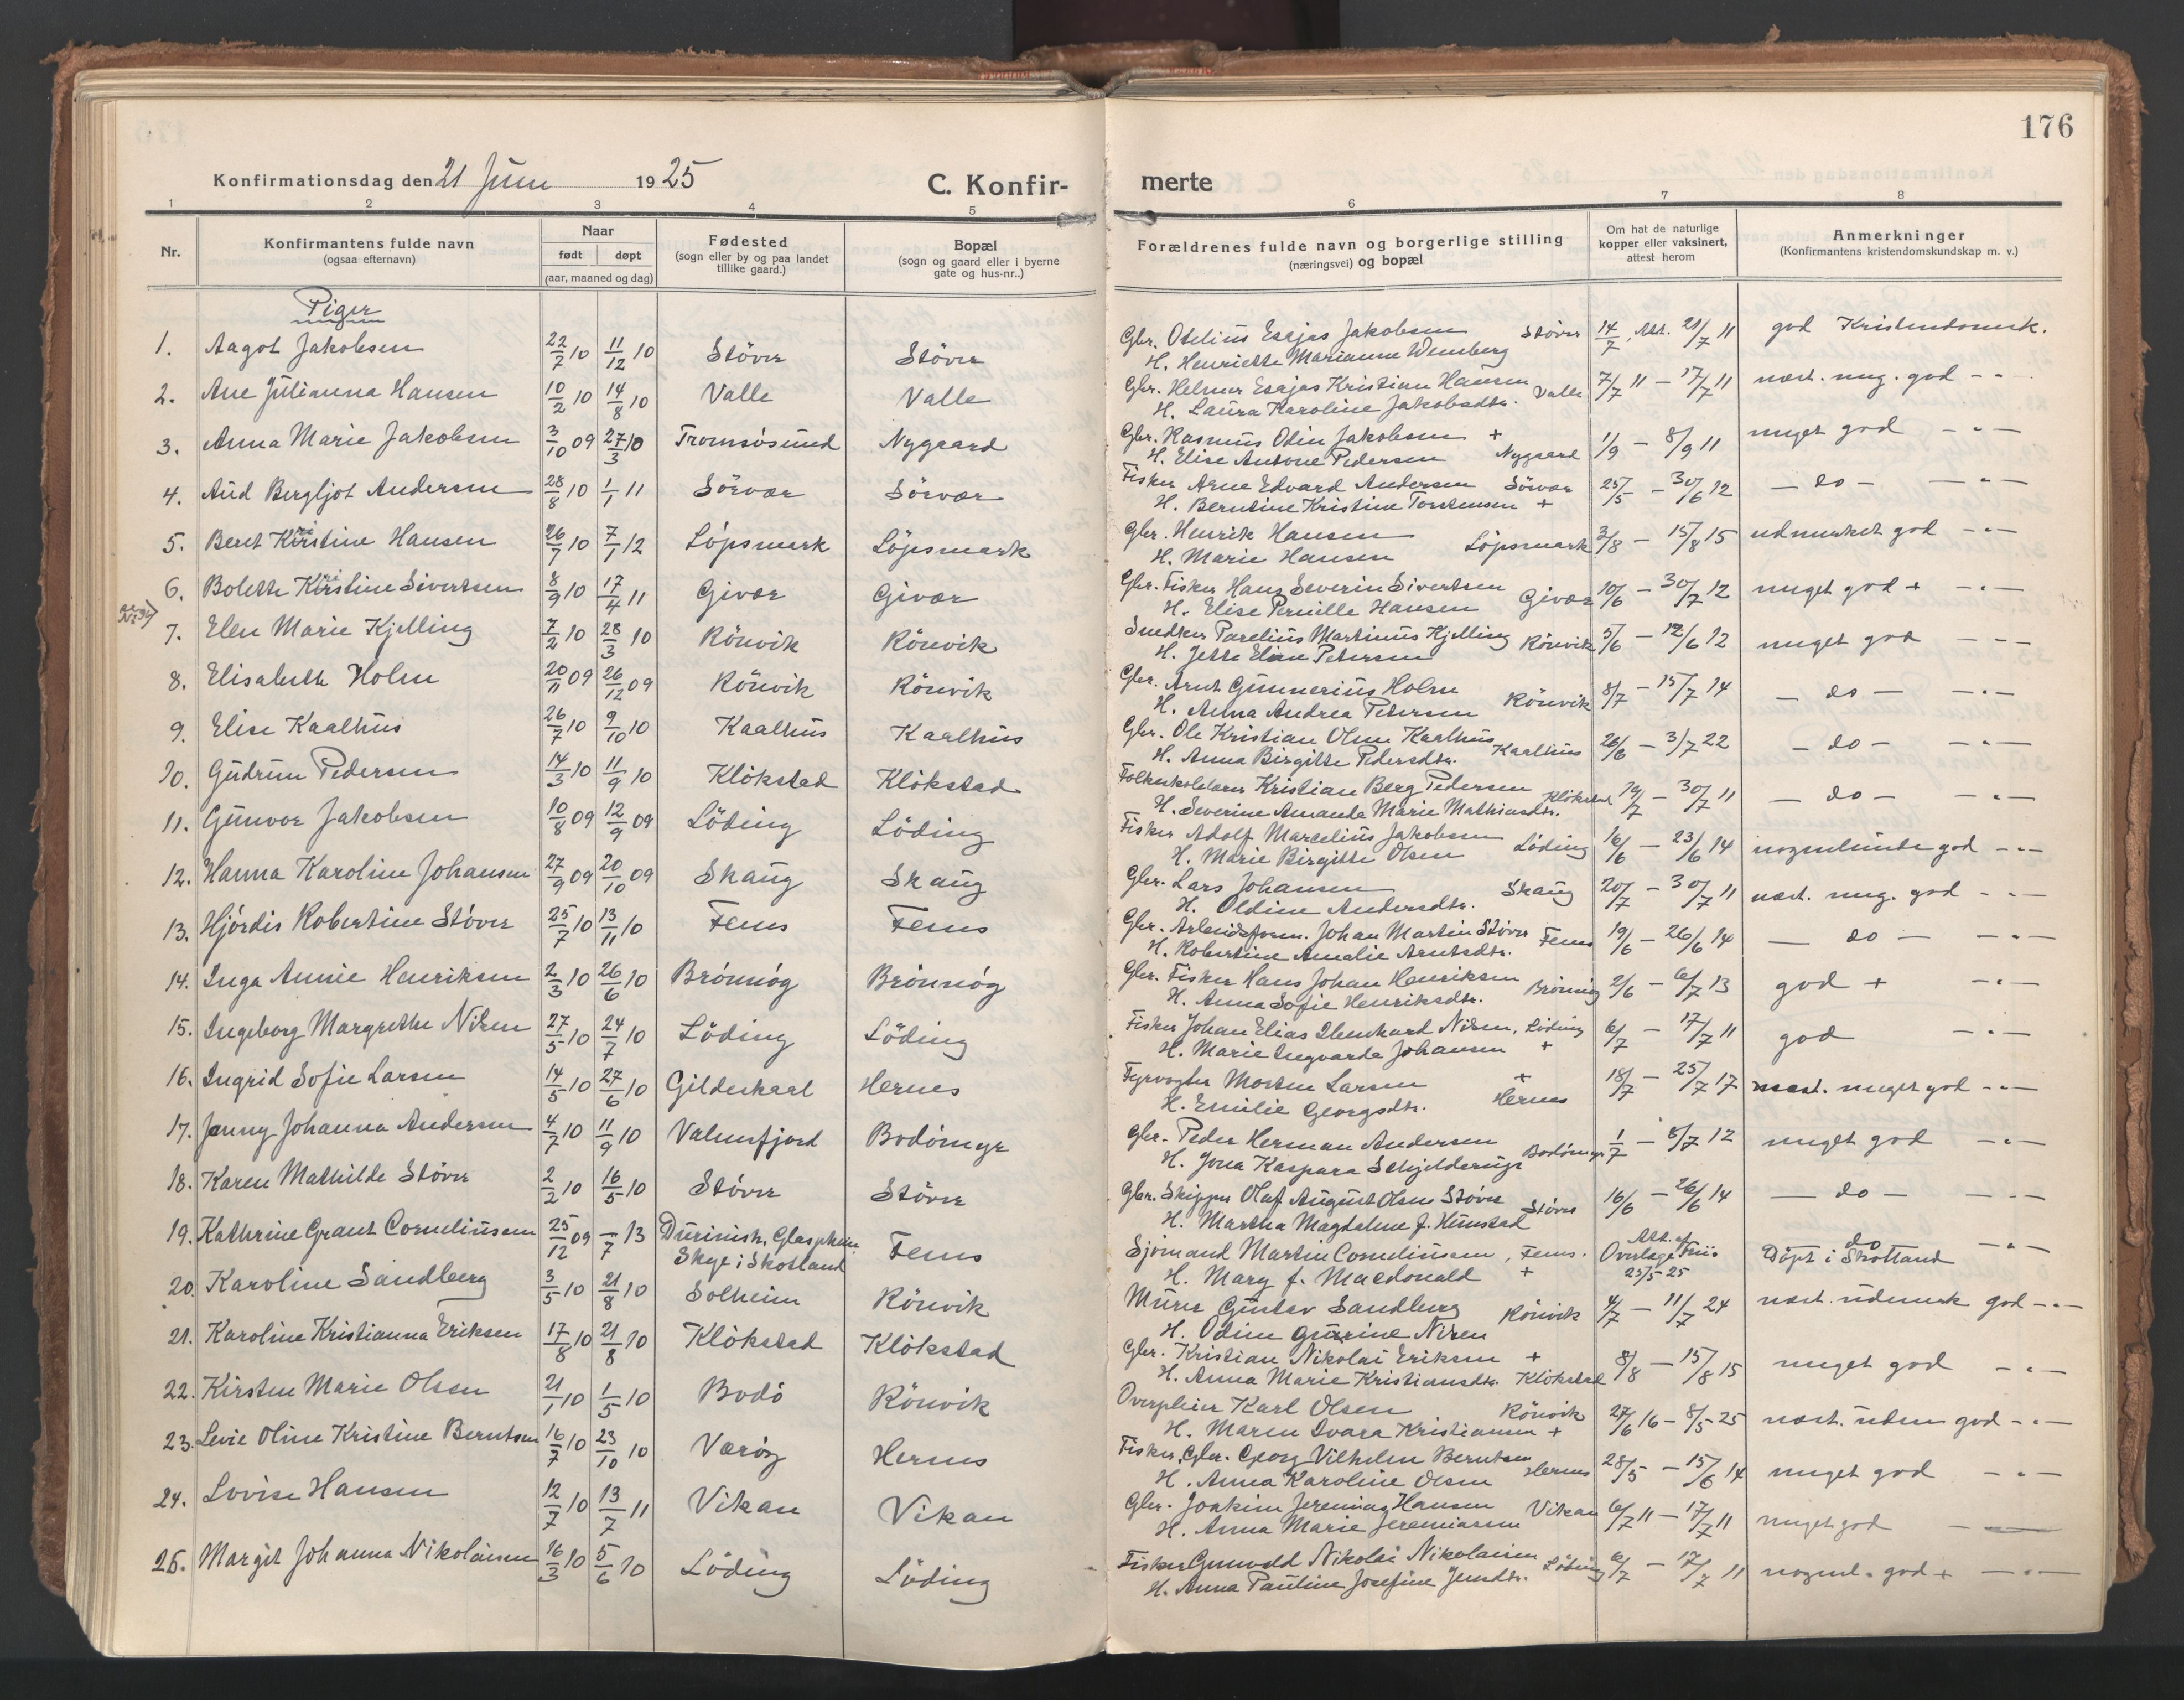 176
Konfirmationsdag den 21 Juni 1925 C. Konfir- merte
1 2 3 4 5 6 7 8
Nr. Konfirmantens fulde navn (ogsaa efternavn) Naar født døpt (aar, maaned og dag) Fødested (sogn eller by og paa landet tillike gaard.) Bopæl (sogn og gaard eller i byerne gate og hus-nr..) Forældrenes fulde navn og borgerlige stilling (næringsvei) og bopæl Om hat de naturlige kopper eller vaksinert, attest herom Anmerkninger (Konfirmantens kristendomskundskap m. v.)
Piger
1. Aagot Jakobsen 22/7 10 11/12 10 Støver Støver Gbr. Otelius Esajas Jakobsen Støver 14/7, Att. 21/7 11 god Kristendomsk.
H. Henriette Marianne Wennberg
2. Ane Julianna Hansen 10/2 10 14/8 10 Valle Valle Gbr. Helmer Esajas Kristian Hansen Valle 7/7 11 - 17/7 11 næst. meg. god - " -
H. Laura Karoline Jakobsdtr.
3. Anna Marie Jakobsen 3/10 09 27/3 10 Tromsøsund Nygaard Gbr. Rasmus Odin Jakobsen + 1/9 - 8/9 11 meget god - " -
H. Elise Antone Pedersen Nygaard
4. Aud Bergljot Andersen 28/8 10 1/1 11 Sörvær Sörvær Fisker Arne Edvard Andersen Sörvær 25/5 - 30/6 12 - do - - " -
H. Berntine Kristine Torstensen +
5. Beret Kristine Hansen 26/9 10 7/1 12 Löpsmark Löpsmark Gbr. Henrik Hansen 3/8 - 15/8 15 udmerket god - " -
H. Marie Hansen Löpsmark
6. Bolette Kristine Sivertsen 8/9 10 17/4 11 Givær Givær Gbr. Fisker Hans Severin Sivertsen 10/6 - 30/7 12 meget god + - " -
H. Elise Pernille Hansen Givær
7. Elen Marie Kjelling 7/2 10 28/3 10 Rönvik Rönvik Snedker Parelius Martinus Kjelling Rönvik 5/6 - 12/6 12 meget god - " -
H. Jette Eline Petersen
8. Elisabeth Holm 20/11 09 26/12 09 Rönvik Rönvik Gbr. Arnt Gunnerius Holm 8/7 - 15/7 14 - do - - " -
H. Anna Andrea Petersen Rönvik
9. Elise Kaalhus 26/7 10 9/10 10 Kaalhus Kaalhus Gbr. Ole Kristian Olsen Kaalhus 26/6 - 3/7 22 - do - - " -
H. Anna Birgitte Pedersdtr. Kaalhus
10. Gudrun Pedersen 14/3 10 11/9 10 Klökstad Klökstad Folkeskolelærer Kristian Berg Pedersen Klökstad 19/7 - 30/7 11 - do - - " -
H. Severine Amanda Marie Mathiasdtr.
11. Gunvor Jakobsen 10/8 09 12/9 09 Löding Löding Fisker Adolf Marcelius Jakobsen Löding 16/6 - 23/6 14 nogenlunde god - " -
H. Marie Birgitte Olsen
12. Hanna Karoline Johansen 27/9 09 20/10 09 Skaug Skaug Gbr. Lars Johansen Skaug 20/7 - 30/7 11 næst. meg. god - " -
H. Oldine Andersdtr.
13. Hjördis Robertine Støver 25/7 10 13/11 10 Fenes Fenes Gbr. Arbeidsform. Johan Martin Støver Fenes 19/6 - 26/6 14 - do - - " -
H. Robertine Amalie Arntsdtr.
14. Inga Annie Henriksen 2/3 10 26/6 10 Brönnög Brönnög Gbr. Fisker Hans Johan Henriksen Brönnög 2/6 - 6/7 13 god + - " -
H. Anna Sofie Henriksdtr.
15. Ingeborg Margrethe Nilsen 27/5 10 24/7 10 Löding Löding Fisker Johan Elias Nilsen, Löding 6/7 - 17/7 11 god - " -
H. Marie Ingvarda Johansen +
16. Ingrid Sofie Larsen 14/5 10 27/6 10 Gildeskaal Hernes Fyrvogter Morten Larsen + 18/7 - 25/7 17 næst. meget god - " -
H. Emilie Georgsdtr. Hernes
17. Jenny Johanna Andersen 4/7 10 11/9 10 Valnesfjord Bodömyr Gbr. Peder Herman Andersen 1/7 - 8/7 12 meget god - " -
H. Jona Kaspara Schjelderup Bodömyr
18. Karen Mathilde Støver 2/2 10 16/5 10 Støver Støver Gbr. Skipper Olaf August Olsen Støver Støver 16/6 - 26/6 14 - do - - " -
H. Martha Magdalene f. Hunstad
19. Kathrine Grant Corneliusen 25/12 09 -/7 13 Durinish, Glasphein Skye i Skotland Fenes Sjömand Martin Corneliusen, Fenes. Att. af Overlæge Friis 25/5-25 do Döpt i Skotland - " -
H. Mary f. Macdonald +
20. Karoline Sandberg 3/5 10 21/8 10 Solheim Rönvik Murer Gustav Sandberg Rönvik 4/7 - 11/7 24 næst. udmerk god - " -
H. Odine Gurine Nilsen
21. Karoline Kristianna Eriksen 17/8 10 21/8 10 Klökstad Klökstad Gbr. Kristian Nikolai Eriksen + 8/8 - 15/8 15 meget god - " -
H. Anna Marie Kristiansdtr. Klökstad
22. Kirsten Marie Olsen 21/1 10 1/5 10 Bodö Rönvik Overpleier Karl Olsen Rönvik 27/6 16 - 8/5-25 næst. udm god - " -
H. Maren Ivara Kristiansen +
23. Levie Oline Kristine Berntsen 16/7 10 23/10 10 Værøy Hernes Fisker, Gbr. Georg Vilhelm Berntsen Hernes 28/5 - 15/6 14 meget god - " -
H. Anna Karoline Olsen
24. Lovise Hansen 12/7 10 13/7 11 Vikan Vikan Gbr. Joakim Jeremias Hansen Vikan 6/7 11 - 17/7 11 meget god - " -
H. Anna Marie Jeremiassen
25. Margit Johanna Nikolaisen 16/3 10 5/6 10 Löding Löding Fisker Gunvald Nikolai Nikolaisen Löding 6/7 - 17/7 11 nogenl. god + - " -
H. Anna Pauline Josefine Jensdtr.